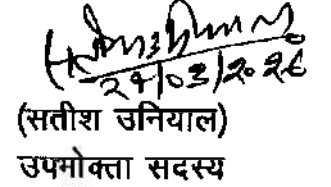 24/03/2026
(सतीश उनियाल)
उपभोक्ता सदस्य